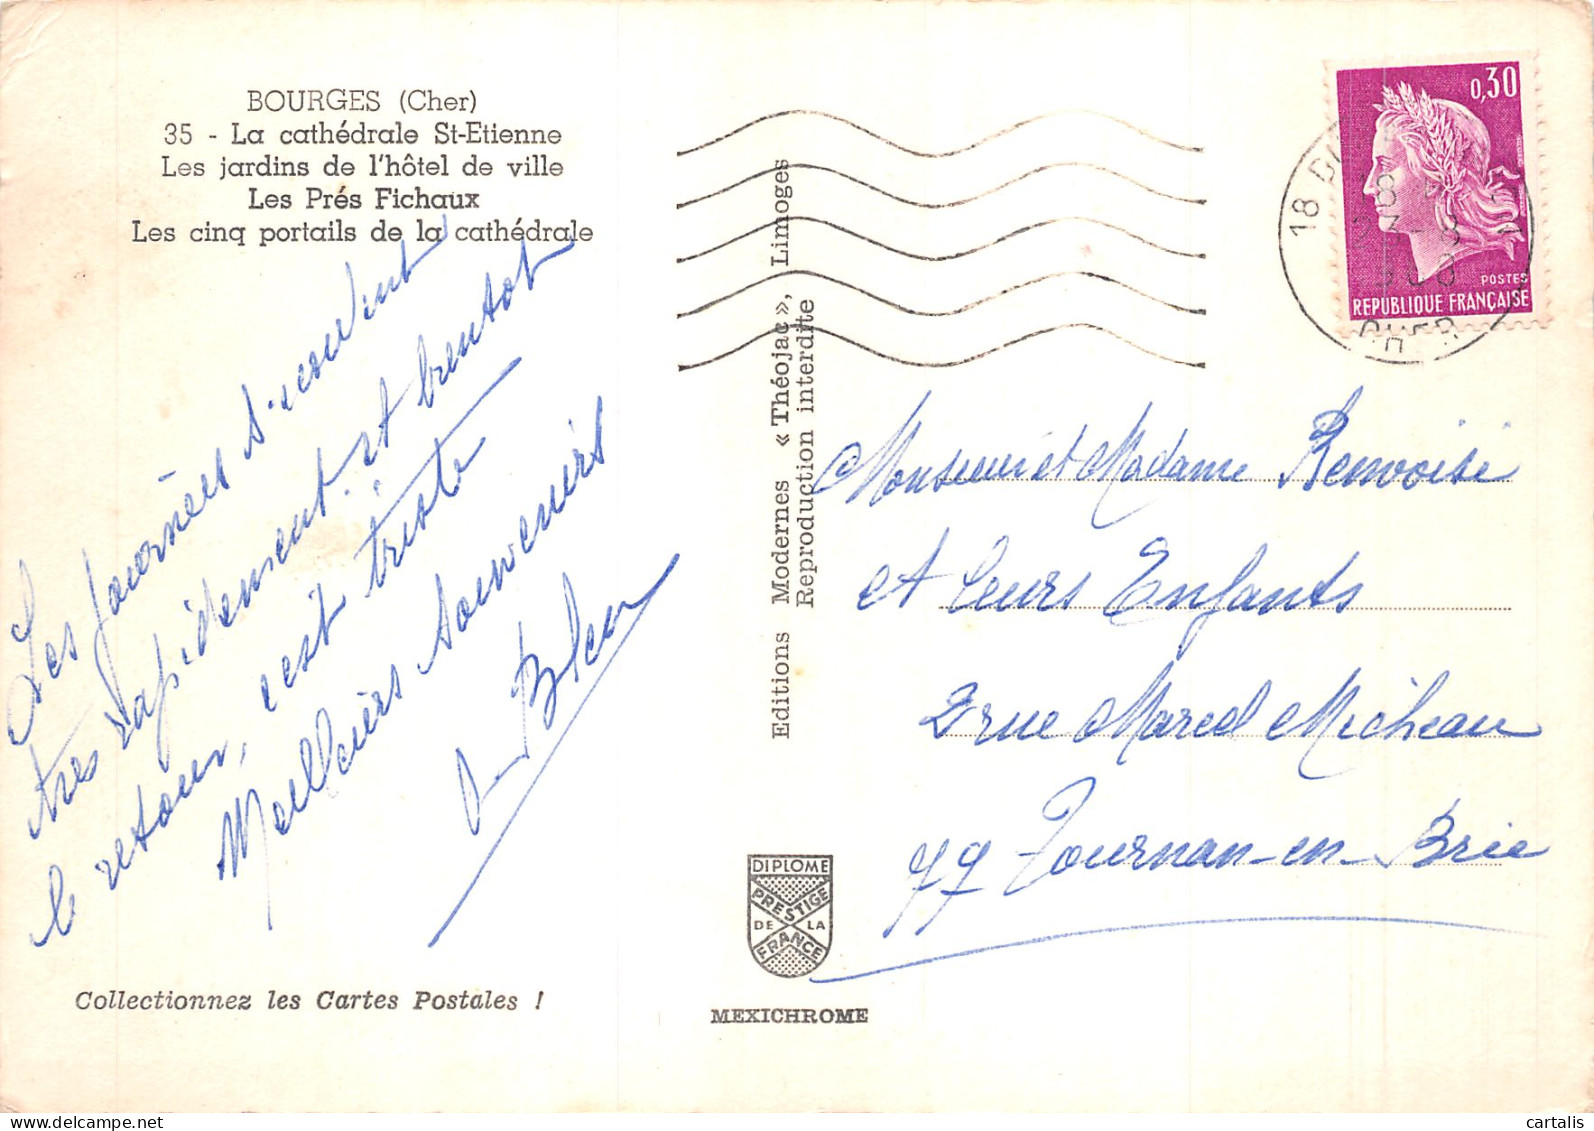 BOURGES (Cher)
35 - La cathédrale St-Etienne
Les jardins de l'hôtel de ville
Les Prés Fichaux
Les cinq portails de la cathédrale
Les journées s'écoulent
très rapidement et bientôt
le retour, c'est triste
Meilleurs Souvenirs
Collectionnez les Cartes Postales !
Editions Modernes « Théojac », Limoges
Reproduction interdite
DIPLOME
PRESTIGE
DE LA
FRANCE
MEXICHROME
0,30
POSTES
REPUBLIQUE FRANÇAISE
18
CHER
Monsieur et Madame Renvoisé
et Leurs Enfants
2 rue Marcel Micheau
77 Tournan-en-Brie
cartalis